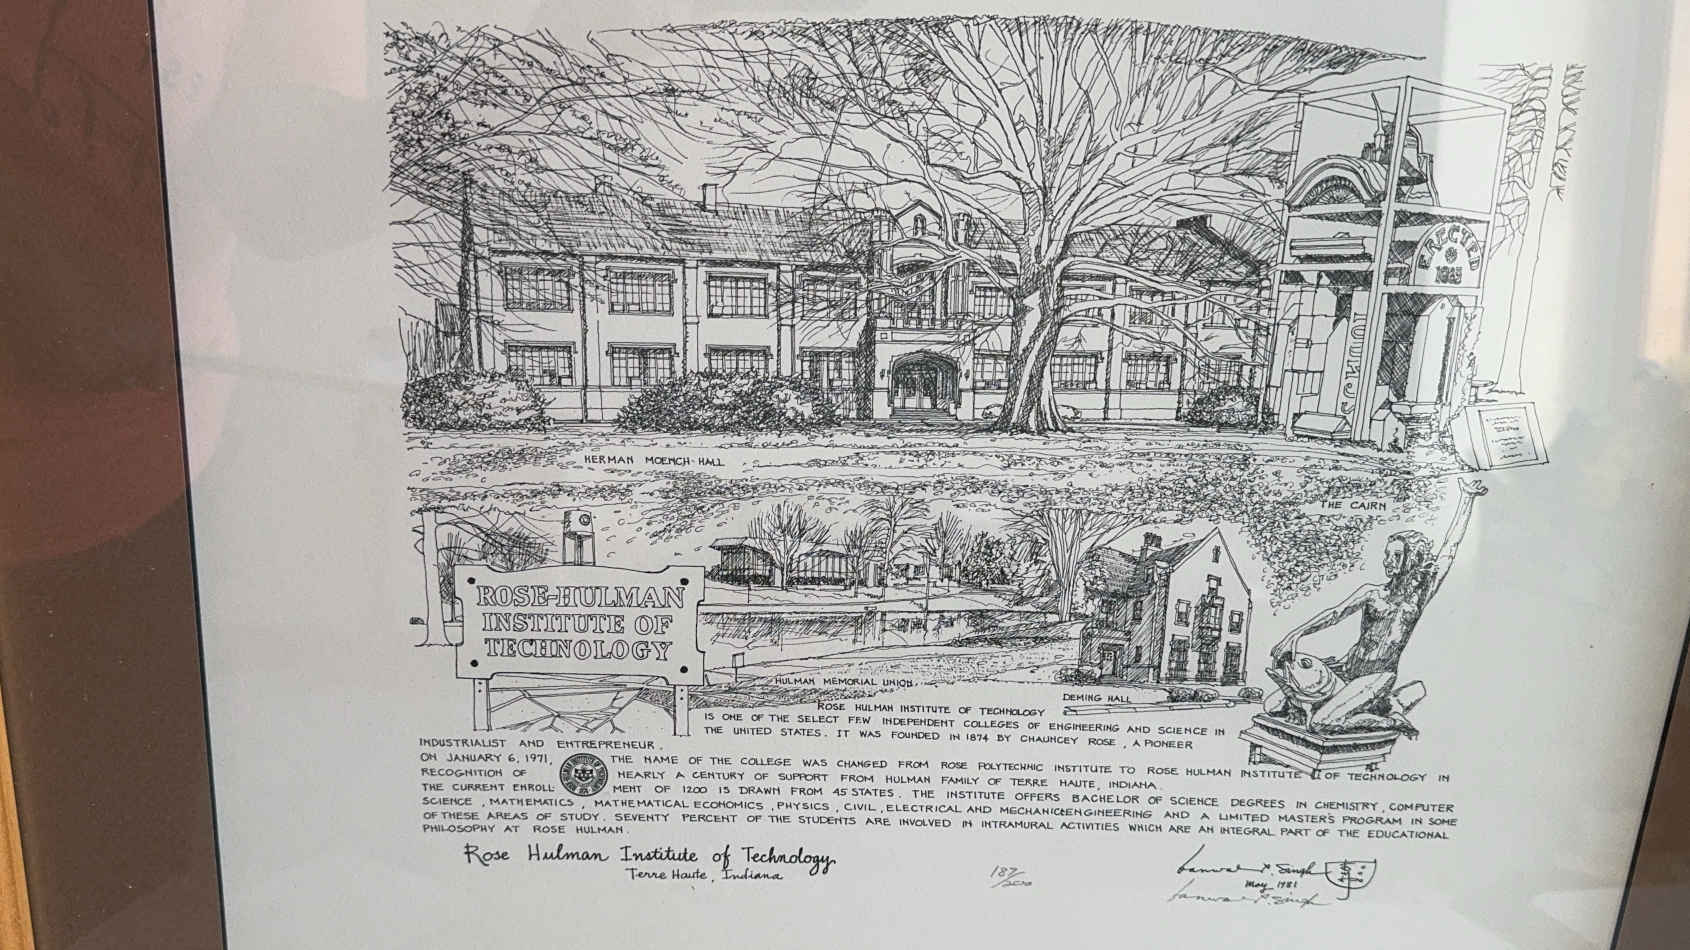 ERECTED
1923
HERMAN MOENCH-HALL
THE CAIRN
ROSE-HULMAN
INSTITUTE OF
TECHNOLOGY
HULMAN MEMORIAL UNION
DEMING HALL
ROSE HULMAN INSTITUTE OF TECHNOLOGY
IS ONE OF THE SELECT FEW INDEPENDENT COLLEGES OF ENGINEERING AND SCIENCE IN
THE UNITED STATES. IT WAS FOUNDED IN 1874 BY CHAUNCEY ROSE, A PIONEER
INDUSTRIALIST AND ENTREPRENEUR.
ON JANUARY 6, 1971, THE NAME OF THE COLLEGE WAS CHANGED FROM ROSE POLYTECHNIC INSTITUTE TO ROSE HULMAN INSTITUTE OF TECHNOLOGY IN
RECOGNITION OF NEARLY A CENTURY OF SUPPORT FROM HULMAN FAMILY OF TERRE HAUTE, INDIANA.
THE CURRENT ENROLLMENT OF 1200 IS DRAWN FROM 45 STATES. THE INSTITUTE OFFERS BACHELOR OF SCIENCE DEGREES IN CHEMISTRY, COMPUTER
SCIENCE, MATHEMATICS, MATHEMATICAL ECONOMICS, PHYSICS, CIVIL, ELECTRICAL AND MECHANICAL ENGINEERING AND A LIMITED MASTER'S PROGRAM IN SOME
OF THESE AREAS OF STUDY. SEVENTY PERCENT OF THE STUDENTS ARE INVOLVED IN INTRAMURAL ACTIVITIES WHICH ARE AN INTEGRAL PART OF THE EDUCATIONAL
PHILOSOPHY AT ROSE HULMAN.
Rose Hulman Institute of Technology
Terre Haute, Indiana
187/200
Singh
May 1981
Singh